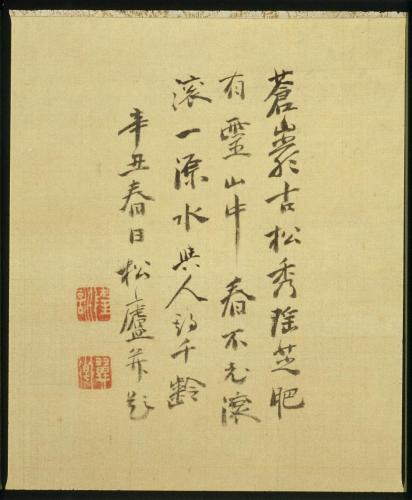 蒼巖古松秀瑤芝肥
有靈山中春不老滾
滾一源水與人約千齡
辛丑春日松廬并題